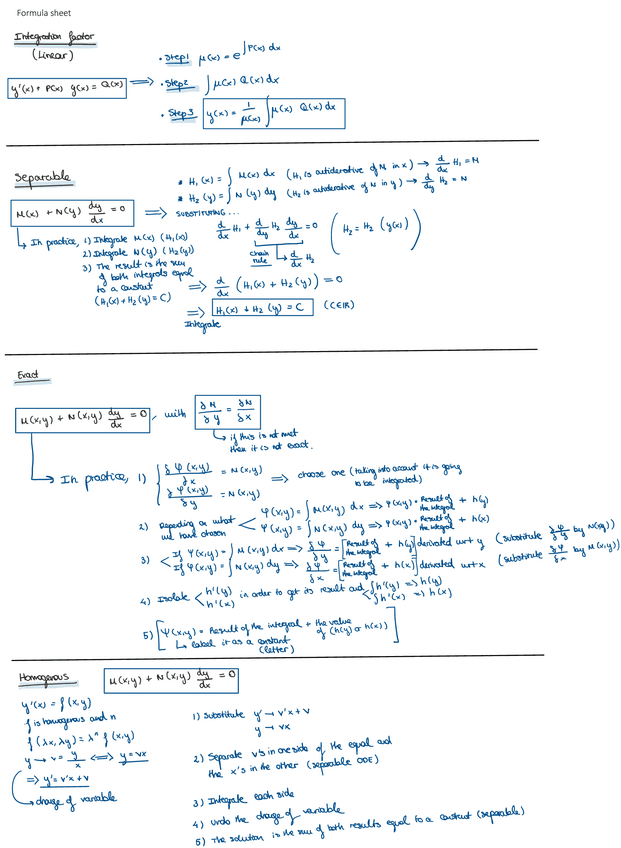 Formula sheet
Integration factor
(Linear)
y'(x) + P(x) y(x) = Q(x) ⟹
• Step1 μ(x) = e^∫P(x) dx
• Step2 ∫ μ(x) Q(x) dx
• Step3 y(x) = 1/μ(x) ∫ μ(x) Q(x) dx
Separable
M(x) + N(y) dy/dx = 0 ⟹
* H₁(x) = ∫ M(x) dx (H₁ is antiderative of M in x) → d/dx H₁ = M
* H₂(y) = ∫ N(y) dy (H₂ is antiderative of N in y) → d/dy H₂ = N
SUBSTITUTING...
d/dx H₁ + d/dy H₂ dy/dx = 0 (H₂ = H₂ (y(x)))
chain rule → d/dx H₂
⟹ d/dx (H₁(x) + H₂(y)) = 0
⟹ H₁(x) + H₂(y) = C (C∈IR)
Integrate
↳ In practice, 1) Integrate M(x) (H₁(x))
2) Integrate N(y) (H₂(y))
3) The result is the sum
of both integrals equal
to a constant
(H₁(x) + H₂(y) = C)
Exact
M(x,y) + N(x,y) dy/dx = 0, with δM/δy = δN/δx
↳ if this is not met
then it is not exact.
In practice, 1) { δΨ(x,y)/δx = M(x,y)
δΨ(x,y)/δy = N(x,y)
⟹ choose one (taking into account it is going
to be integrated)
2) Depending on what
we have chosen
Ψ(x,y) = ∫ M(x,y) dx ⟹ Ψ(x,y) = Result of the integral + h(y)
Ψ(x,y) = ∫ N(x,y) dy ⟹ Ψ(x,y) = Result of the integral + h(x)
3) If Ψ(x,y) = ∫ M(x,y) dx ⟹ δΨ/δy = [Result of the integral + h(y)] derivated wrt y (substitute δΨ/δy by N(x,y))
If Ψ(x,y) = ∫ N(x,y) dy ⟹ δΨ/δx = [Result of the integral + h(x)] derivated wrt x (substitute δΨ/δx by M(x,y))
4) Isolate h'(y) h'(x) in order to get its result and ∫ h'(y) ⟹ h(y)
∫ h'(x) ⟹ h(x)
5) [Ψ(x,y) = Result of the integral + the value
of (h(y) or h(x))]
↳ label it as a constant
(letter)
Homogenous
M(x,y) + N(x,y) dy/dx = 0
y'(x) = f(x,y)
f is homogenous and n
f(λx, λy) = λⁿ f(x,y)
y → v = y/x ⟺ y = vx
⟹ y' = v'x + v
→ change of variable
1) Substitute y' → v'x + v
y → vx
2) Separate v's in one side of the equal and
the x's in the other (separable ODE)
3) Integrate each side
4) Undo the change of variable
5) The solution is the sum of both results equal to a constant (separable)